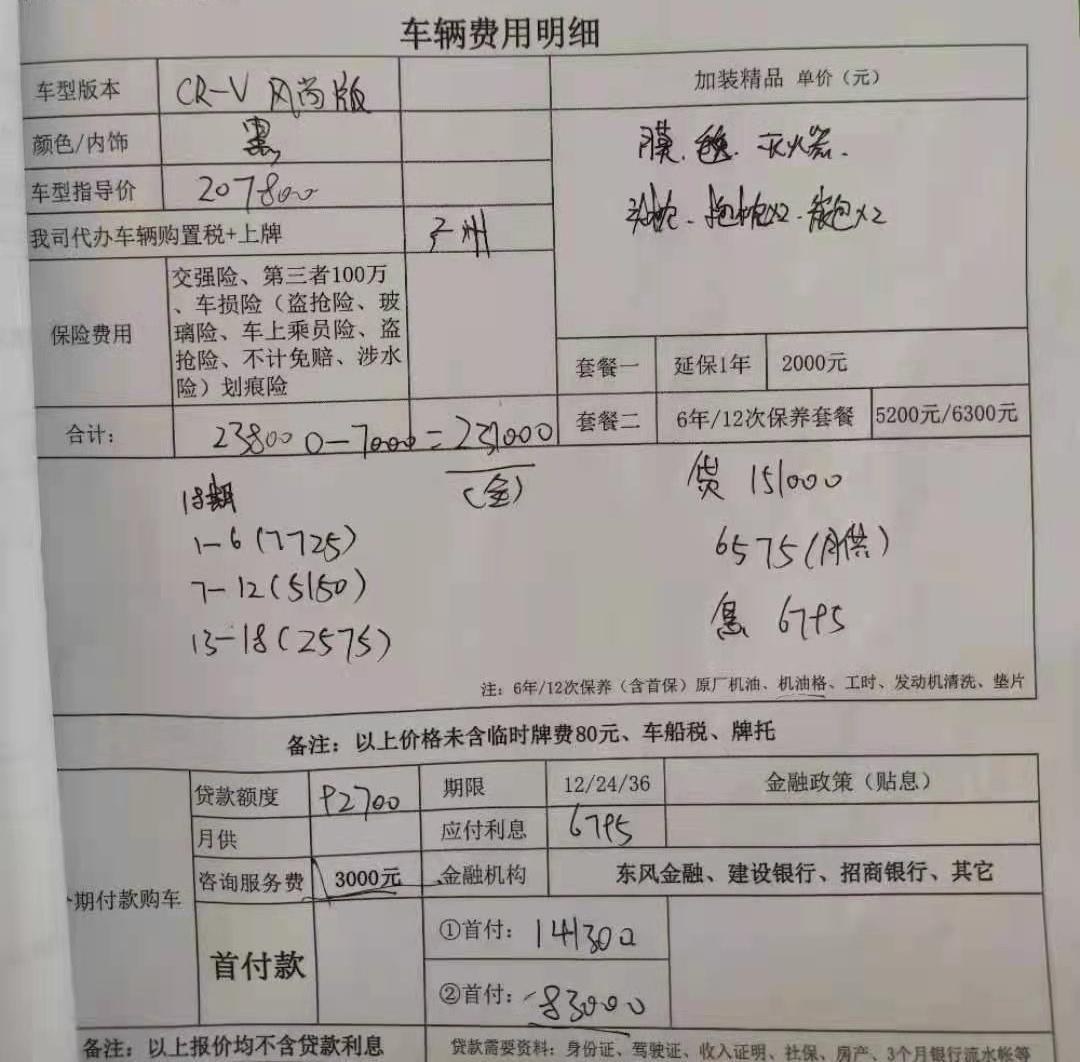 车辆费用明细
车型版本 CR-V 风尚版
加装精品 单价（元）
颜色/内饰 黑
膜、 灭火器、
车型指导价 207800
头枕、抱枕x2、 x2
我司代办车辆购置税+上牌 广州
保险费用
交强险、第三者100万
、车损险（盗抢险、玻
璃险、车上乘员险、盗
抢险、不计免赔、涉水
险）划痕险
套餐一 延保1年 2000元
合计： 238000-7000=231000
套餐二 6年/12次保养套餐 5200元/6300元
18期 (全) 贷 151000
1-6(7725) 6575(月供)
7-12(5150)
13-18(2575) 息 6795
注：6年/12次保养（含首保）原厂机油、机油格、工时、发动机清洗、垫片
备注：以上价格未含临时牌费80元、车船税、牌托
期付款购车
贷款额度 92700 期限 12/24/36 金融政策（贴息）
月供 应付利息 6795
咨询服务费 3000元 金融机构 东风金融、建设银行、招商银行、其它
首付款
①首付：141300
②首付：83000
备注：以上报价均不含贷款利息
贷款需要资料：身份证、驾驶证、收入证明、社保、房产、3个月银行流水帐等